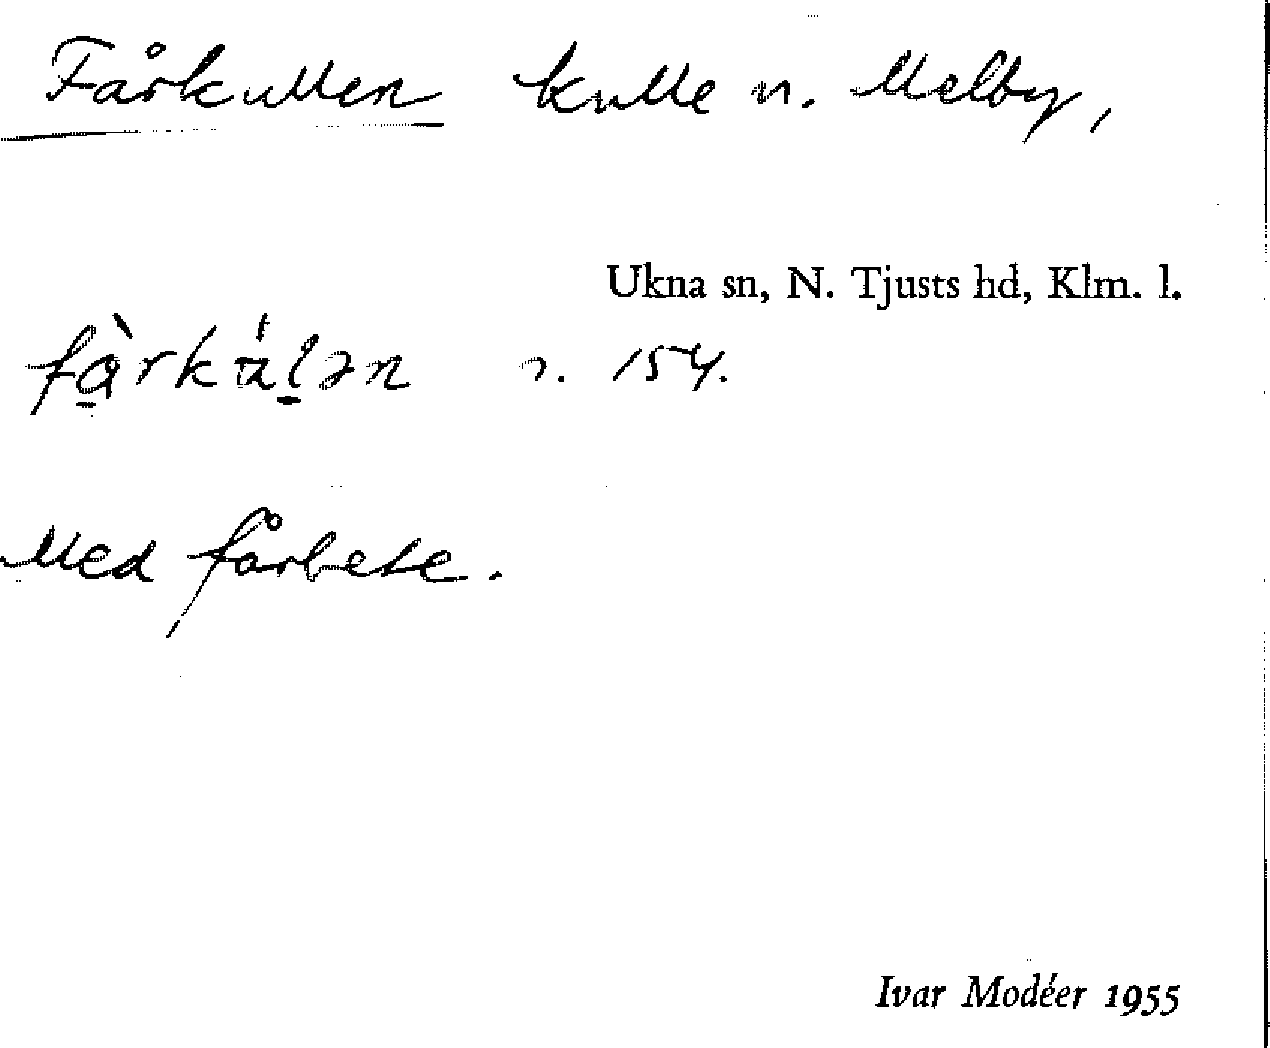 Fårkullen kulle n. Melby,
Ukna sn, N. Tjusts hd, Klm. l.
n. 154.
Med fårbete.
Ivar Modéer 1955